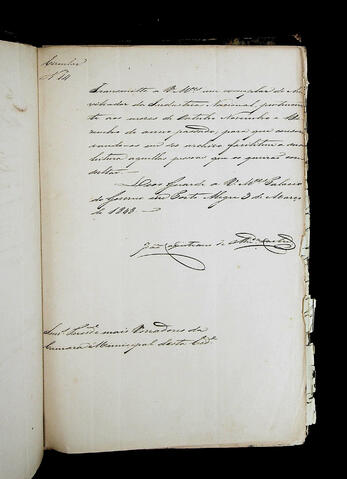 Circular
N.º 14
Transmitto a V. Mces um exemplar do Au-
xiliador da Industria Nacional pertencente
aos mezes de Outubro Novembro e De-
zembro do anno passado, para que
em seo archivo facilitem a sua
leitura aquellas pessoas que o queirão con-
sultar.
Deos Guarde a V. Mces Palacio
do Governo em Porto Alegre 3 de Março
de 1848
Snr.s Presid.e e mais Vereadores da
Camara Municipal desta Cid.e